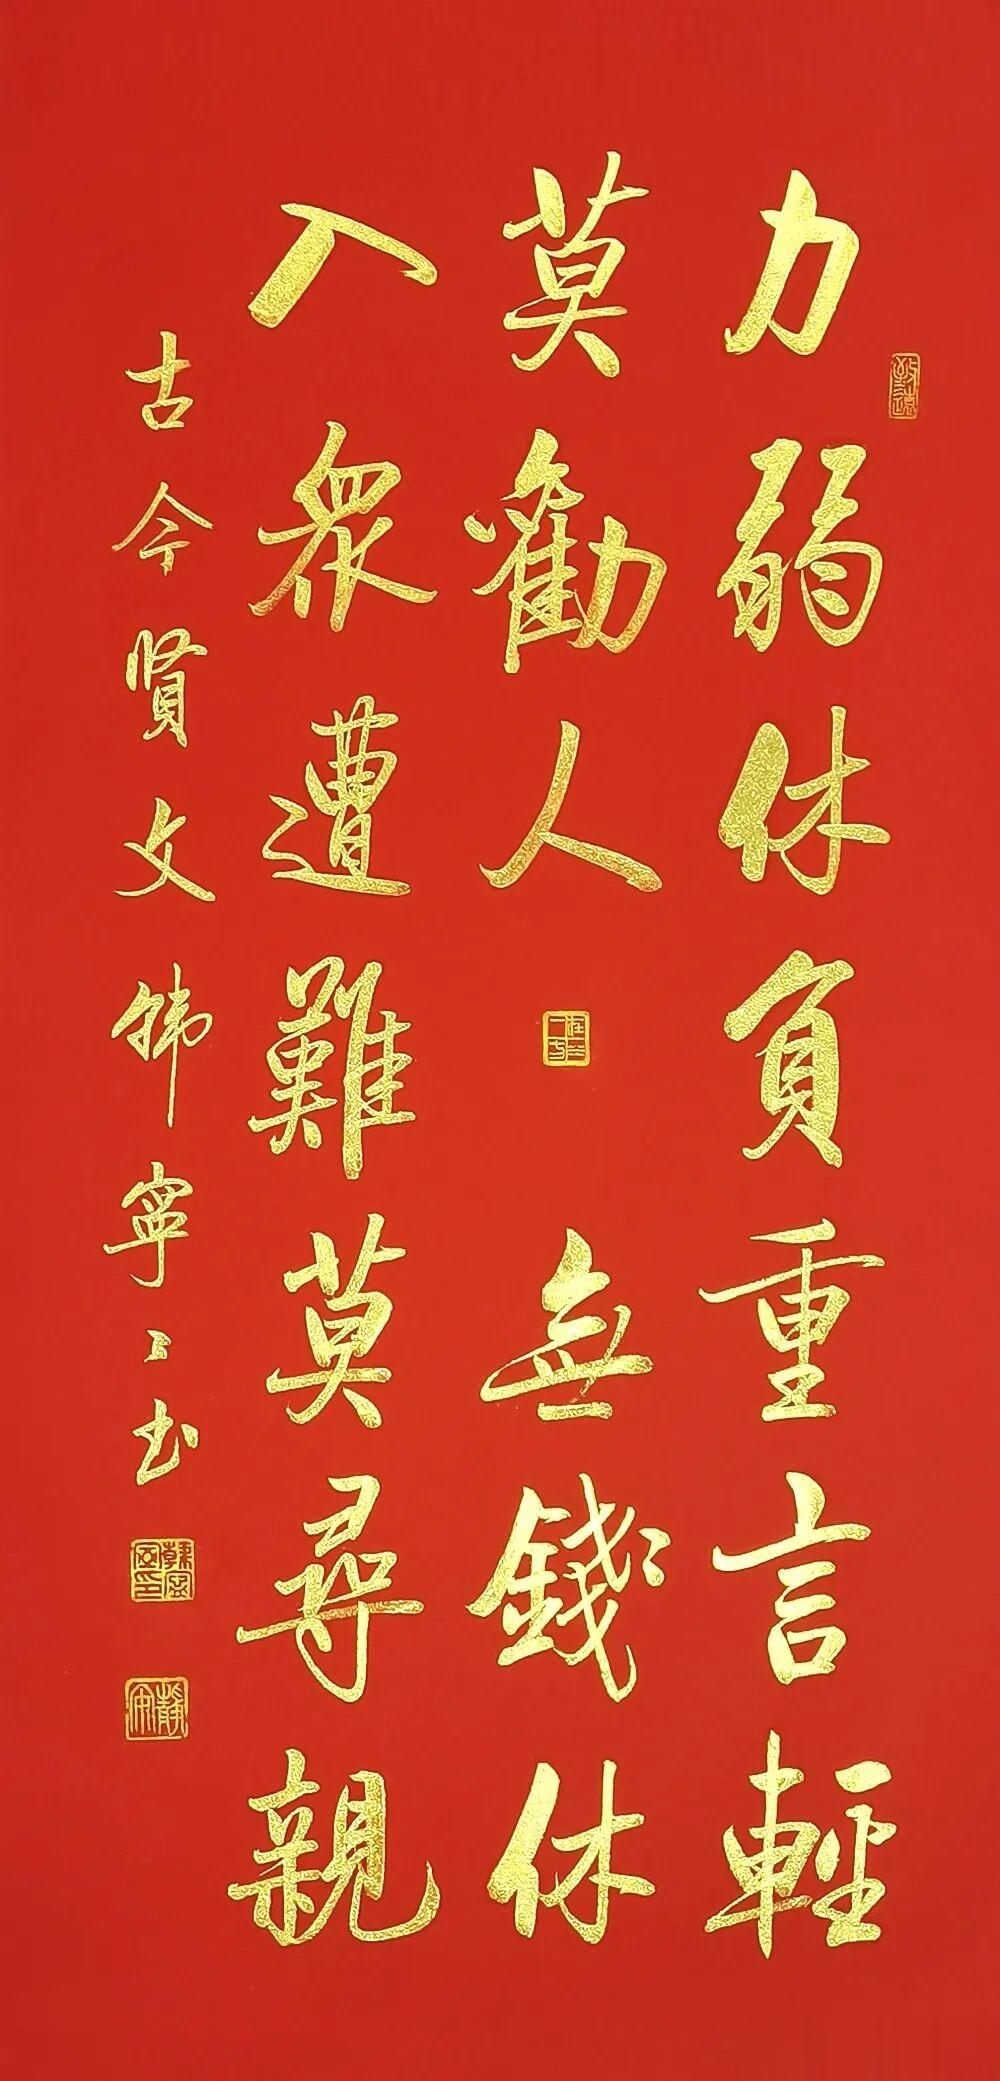 力弱休負重言輕
莫勸人 無錢休
入衆遭難莫尋親
古今贤文 韩寧〻书